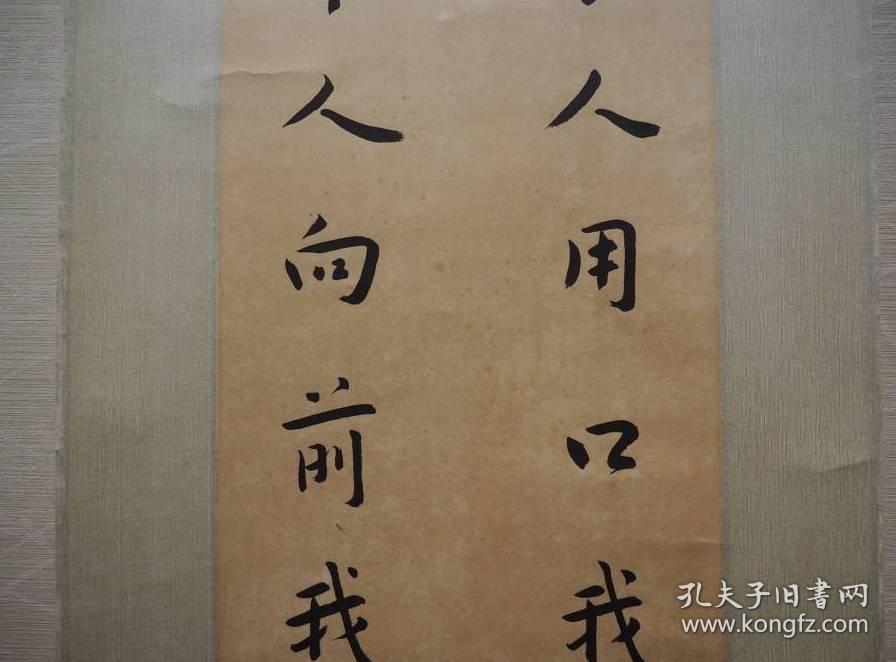 人用口我
人向前我
孔夫子旧書网
www.kongfz.com